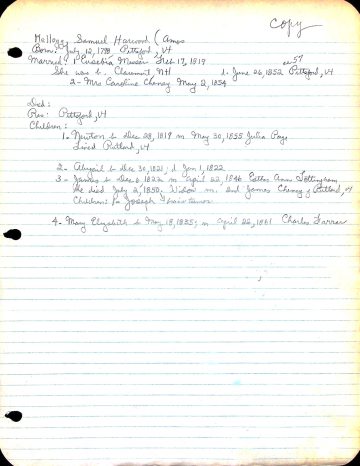 copy
Kellogg, Samuel Harwood (Amos
Born: July 12, 1798 Pittsford, Vt
Married: 1 Eusebia Feb 17, 1819 ae 57
She was b. Claremont, NH d. June 26, 1852 Pittsford, Vt
2 - Mrs Caroline Cheney May 2, 1854
Died:
Res: Pittsford, Vt
Children:
1. Newton b Dec 28, 1819 m May 30, 1855 Julia Page
Lived Rutland, Vt
2 - Abigail b Dec 30, 1821; d Jan 1, 1822
3 - James b Dec 6, 1822 m April 22, 1846 Esther Ann Tottingham
He died July 2, 1850; Widow m. 2nd James Cheney of Rutland, Vt
Children: 1 - Joseph
4 - Mary Elizabeth b May 18, 1835; m April 22, 1861 Charles Farrar